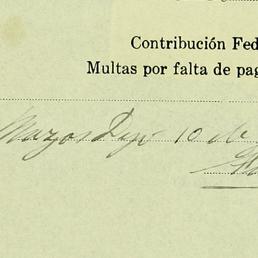 Contribución Fed
Multas por falta de pag
Marzo 10 de